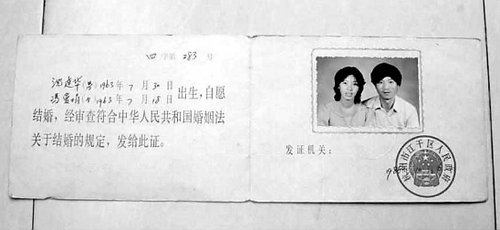 四字第283号
(男)1963年7月30日
(女)1963年7月18日
出生，自愿
结婚，经审查符合中华人民共和国婚姻法
关于结婚的规定，发给此证。
发证机关：
杭州市江干区人民政府